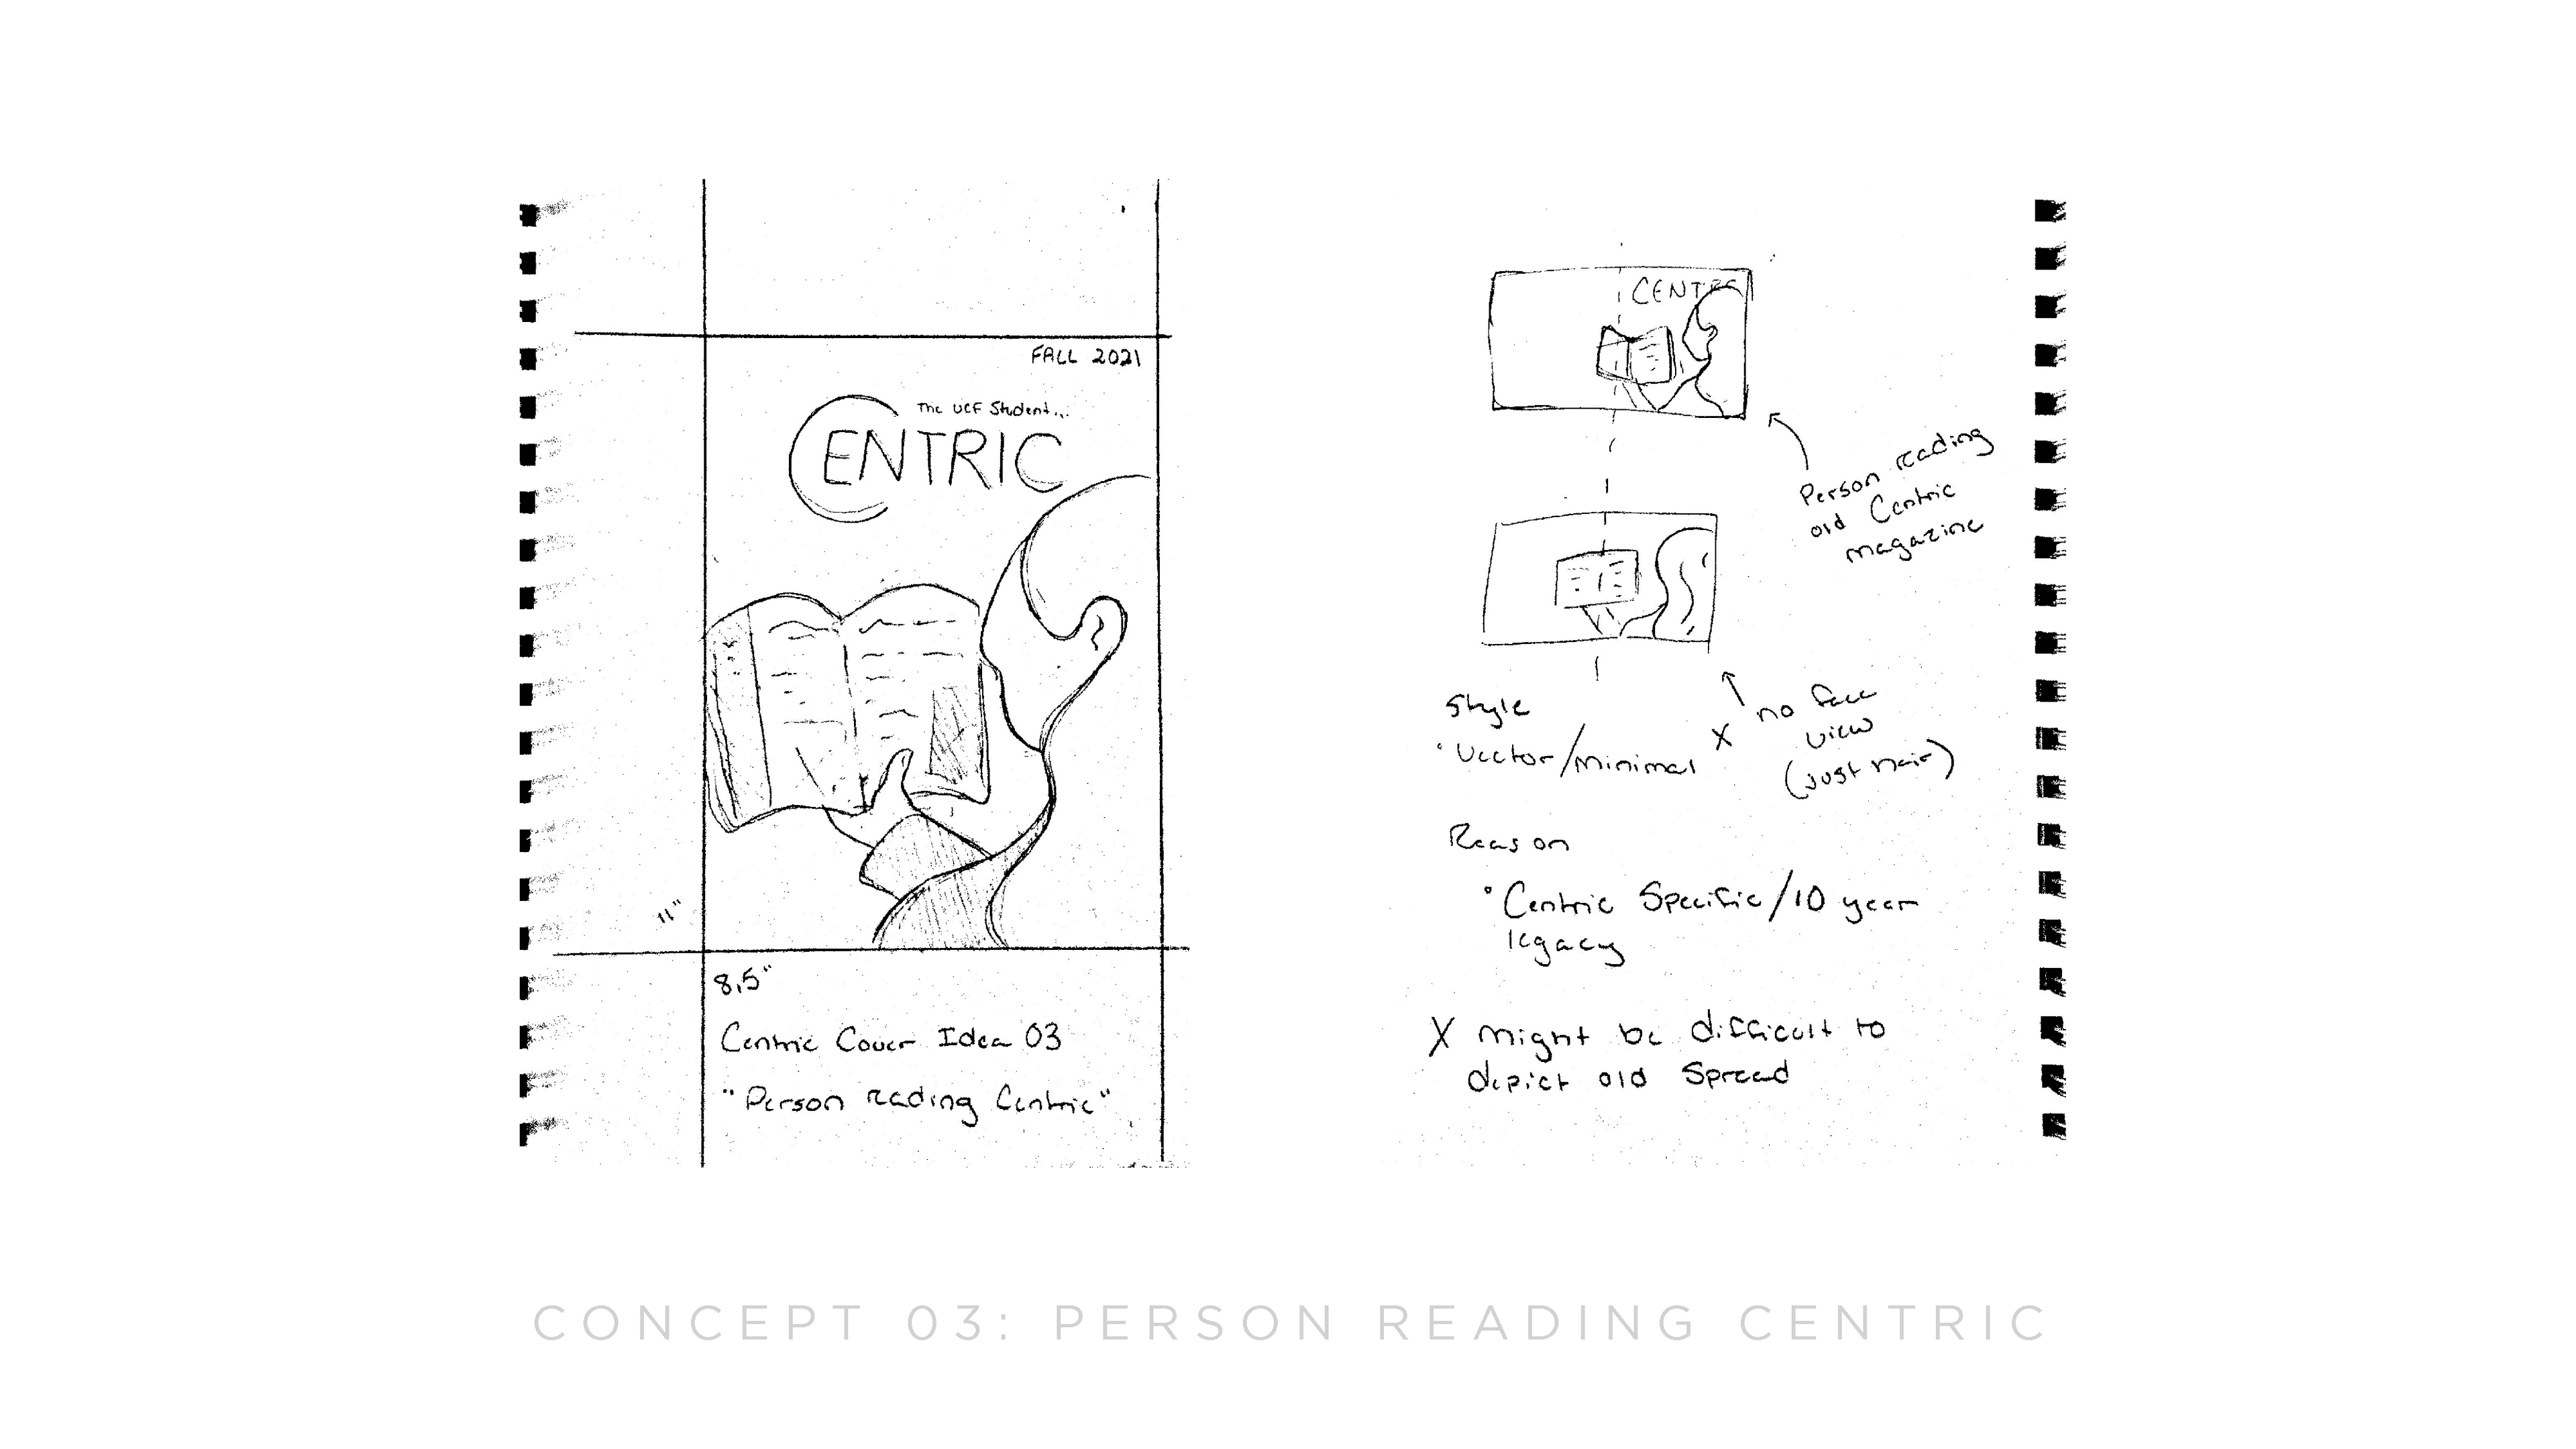 FALL 2021
The UCF Student...
CENTRIC
11"
8.5"
Centric Cover Idea 03
"Person reading Centric"
CENTRIC
Person reading
old Centric
magazine
no face
view
(just hair)
Style
• Vector/minimal
X
Reason
• Centric Specific/10 year
legacy
X might be difficult to
depict old Spread
CONCEPT 03: PERSON READING CENTRIC